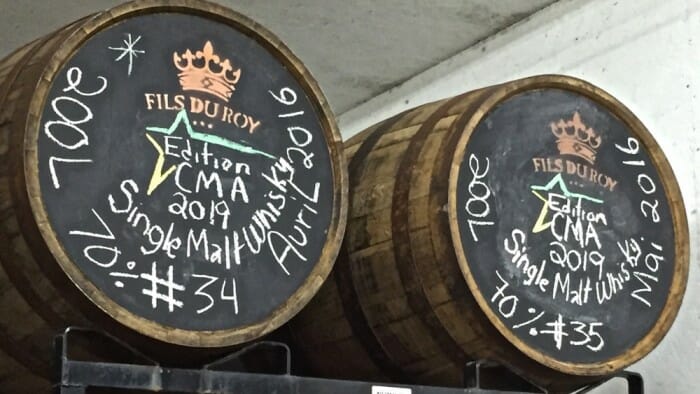 200ℓ
FILS DU ROY
Edition
CMA
2019
Single Malt Whisky
Avril 2016
70% #34
200ℓ
FILS DU ROY
Edition
CMA
2019
Single Malt Whisky
Mai 2016
70% #35